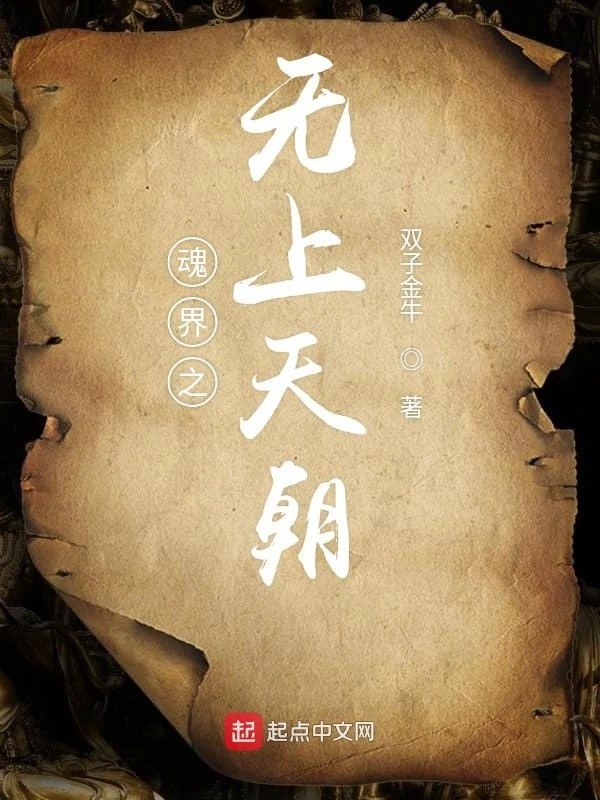 魂界之
无上天朝
双子金牛 ◎ 著
起 起点中文网